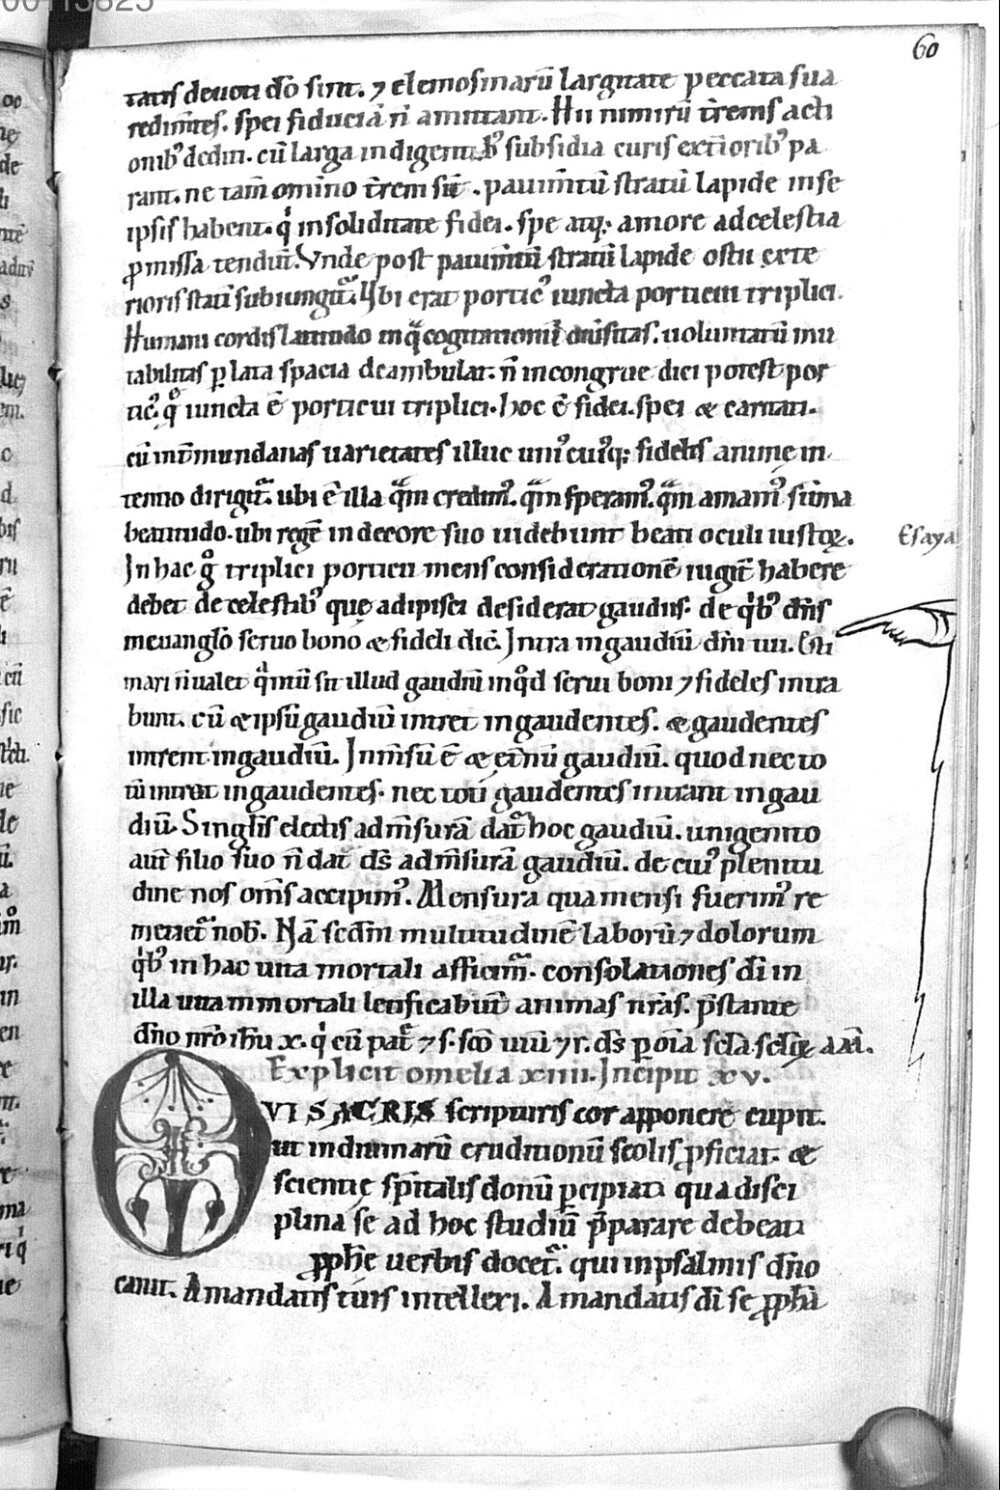 00113825
60
tatis deuoti dō sint. ⁊ elemosinarū largitate peccata sua
redim̄tes. spei fiduciā n̄ amittant. Hii nimirū t̄rems acti
onibꝰ dediti. cū larga indigentibꝰ subsidia curis ext̄ioribꝰ pa
rant. ne tam̄ omīno t̄rem sit. pauim̄tū stratū lapide in se
ipsis habent. q̇ in soliditate fidei. spe atq; amore ad celestia
ꝓmissa tendūt. Vnde post pauim̄tū stratū lapide ostii exte
rioris stati subiungit̄. Vbi erat porticꝰ iuncta porticui triplici.
Humani cordis latitudo in q̄ cogitationū diuersitas. uoluntatū mu
tabilitas ꝑ lata spacia deambulat. n̄ incongrue dici potest por
ticꝰ. q̊ iuncta ē porticui triplici. hoc ē fidei. spei & caritati.
cū int̄ mundanas uarietates illuc uniꝰcuiꝰq; fidelis animę in
tentio dirigit̄. ubi ē illa q̄m credimꝰ. q̄m speramꝰ. q̄m amamꝰ sūma
beatitudo. ubi regē in decore suo uidebunt beati oculi iustoꝝ.
Esaya
In hac g̊ triplici porticu mens considerationē iugit̄ habere
debet de celestibꝰ que adipisci desiderat gaudiis. de q̇bꝰ dn̄s
in euanglo seruo bono & fideli dic̄. Intra in gaudiū dn̄i tui. Esti
mari n̄ ualet q̄ntū sit illud gaudiū in q̊d serui boni ⁊ fideles intra
bunt. cū & ipsū gaudiū intret in gaudentes. & gaudentes
intrent in gaudiū. Inm̄sū ē & et̄nū gaudiū. quod nec to
tū intrat in gaudentes. nec toti gaudentes intrant in gau
diū. Singlis electis ad m̄surā dat̄ hoc gaudiū. unigenito
aut̄ filio suo n̄ dat ds̄ ad m̄surā gaudiū. de cuiꝰ plenitu
dine nos om̄s accipimꝰ. Mensura qua mensi fuerimꝰ re
metiet̄ nob̄. Nā scdm̄ multitudinē laborū ⁊ dolorum
q̇bꝰ in hac uita mortali afficim̄. consolationes dī in
illa uita inmortali letificabūt animas nr̄as. p̄stante
dn̄o nr̄o ih̄u x. q̇ cū pat̄ ⁊ s. sc̄o uiuit ⁊ r. ds̄ ꝑ om̄a scl̄a scl̄oꝝ am.
Explicit omelia xiiii. Incipit xv.
QVI SACRIS scripturis cor apponere cupit.
ut in diuinarū eruditionū scolis ꝓficiat. &
scientię sp̄italis donū ꝑcipiat. qua disci
plina se ad hoc studiū p̄parare debeat
ꝓphe uerbis docet̄. qui in psalmis dn̄o
canit. A mandatis tuis intellexi. A mandatis dī se ꝓpha